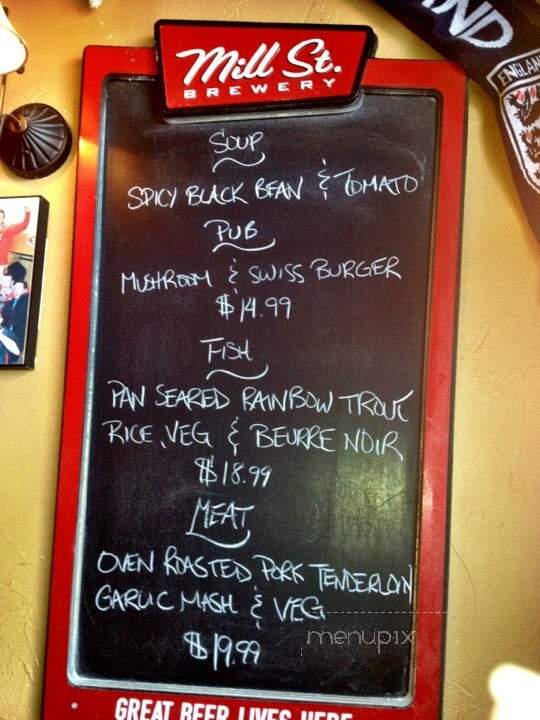 Mill St.
BREWERY
SOUP
SPICY BLACK BEAN & TOMATO
PUB
MUSHROOM & SWISS BURGER
$14.99
FISH
PAN SEARED RAINBOW TROUT
RICE, VEG & BEURRE NOIR
$18.99
MEAT
OVEN ROASTED PORK TENDERLOIN
GARLIC MASH & VEG
$19.99
menupix
GREAT BEER LIVES HERE
ENGLAND